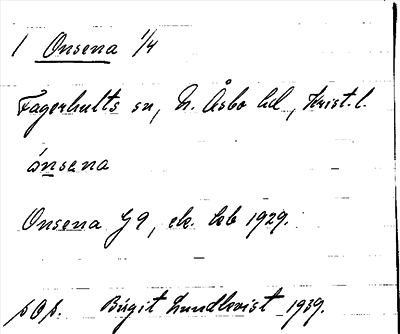 1 Onsena 1/4
Fagerhults sn, N. Åsbo hd, Krist. l.
ònsena
Onsena J 9, ek. kb 1929.
s. Birgit Lundkvist 1939.